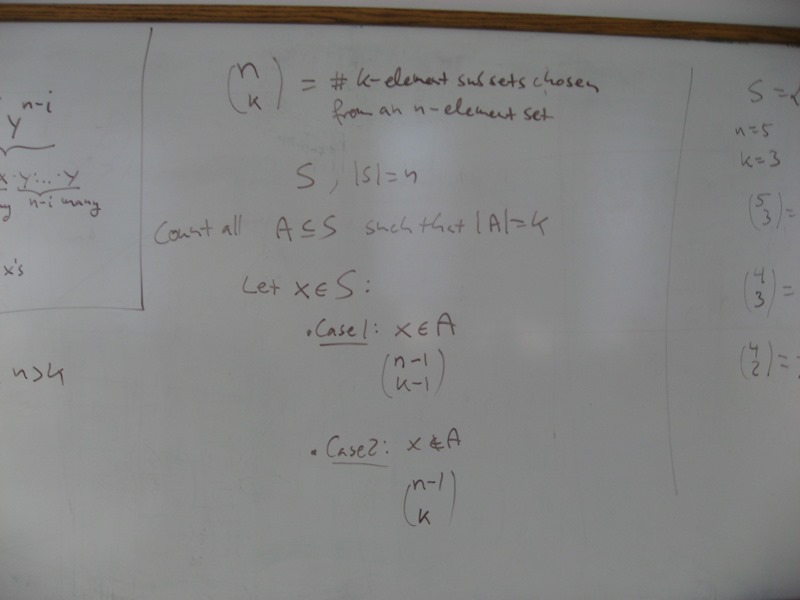 y^{n-i}
x·y·...·y
n-i many
x's
n>k
\binom{n}{k} = # k-element subsets chosen
from an n-element set
S, |S|=n
Count all A⊆S such that |A|=k
Let x∈S:
• Case 1: x∈A
\binom{n-1}{k-1}
• Case 2: x∉A
\binom{n-1}{k}
S = {
n=5
k=3
\binom{5}{3} =
\binom{4}{3} =
\binom{4}{2} =